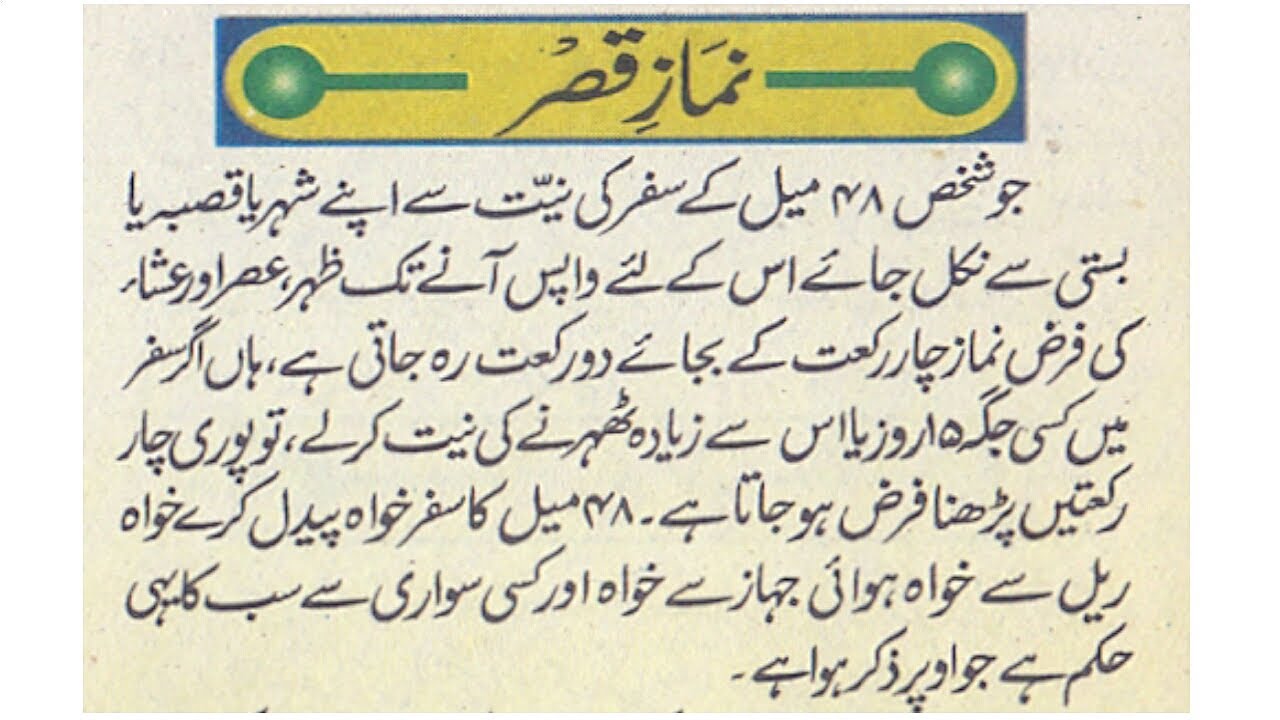 نمازِ قصر
جو شخص ۴۸ میل کے سفر کی نیّت سے اپنے شہر یا قصبہ یا
بستی سے نکل جائے اس کے لئے واپس آنے تک ظہر، عصر اور عشاء
کی فرض نماز چار رکعت کے بجائے دو رکعت رہ جاتی ہے، ہاں اگر سفر
میں کسی جگہ ۱۵ روز یا اس سے زیادہ ٹھہرنے کی نیت کر لے، تو پوری چار
رکعتیں پڑھنا فرض ہو جاتا ہے۔ ۴۸ میل کا سفر خواہ پیدل کرے خواہ
ریل سے خواہ ہوائی جہاز سے خواہ اور کسی سواری سے سب کا یہی
حکم ہے جو اوپر ذکر ہوا ہے۔